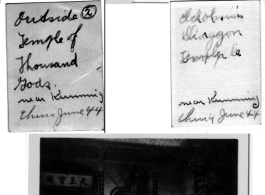 Outside ②
Temple of
Thousand
Gods.
near Kunming
China June 44
Dragon
Temple
near Kunming
China June 44